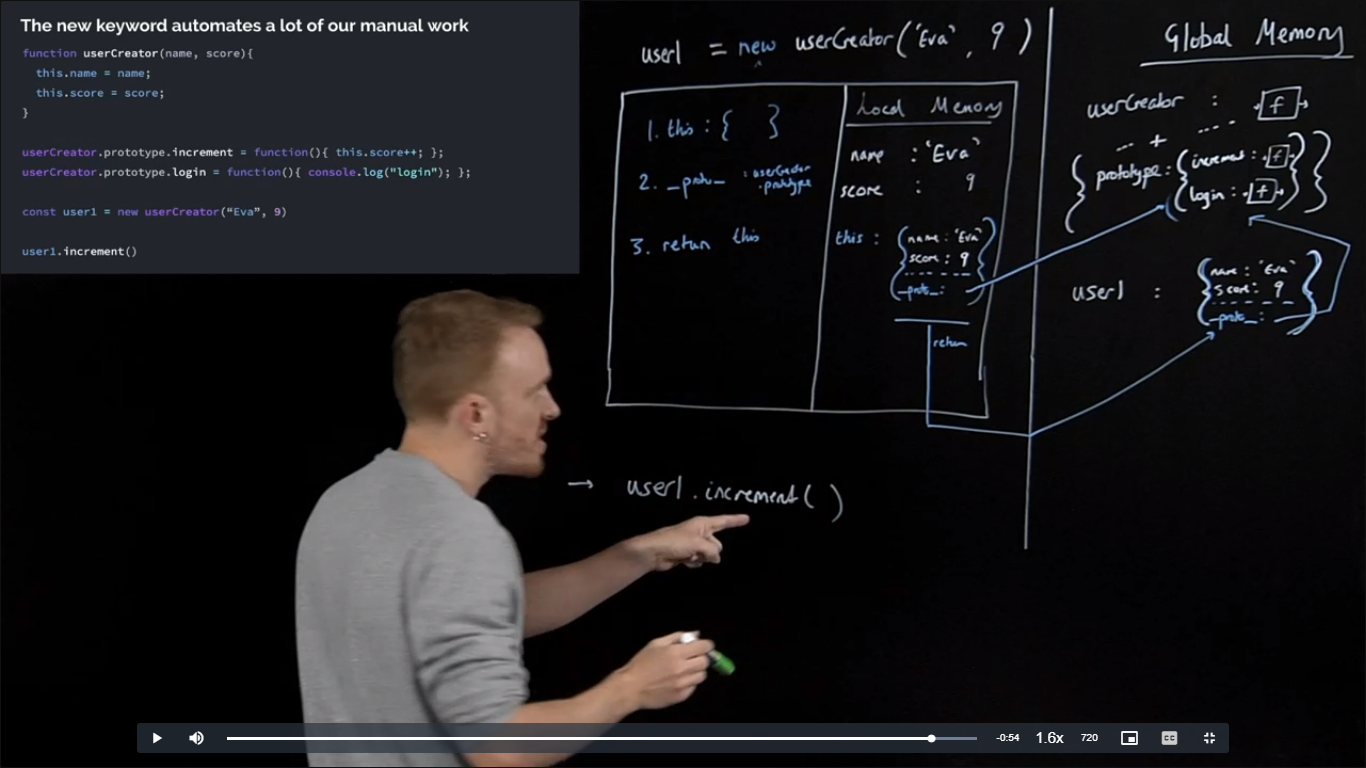 The new keyword automates a lot of our manual work
function userCreator(name, score){
this.name = name;
this.score = score;
}
userCreator.prototype.increment = function(){ this.score++; };
userCreator.prototype.login = function(){ console.log("login"); };
const user1 = new userCreator(“Eva”, 9)
user1.increment()
user1 = new userCreator('Eva', 9)
1. this : { }
2. __proto__ : userCreator
.prototype
3. return this
Local Memory
name : 'Eva'
score : 9
this : { name : 'Eva'
score : 9
__proto__ : }
return
Global Memory
userCreator : f
+
{ prototype : { increment : f
login : f } }
user1 : { name : 'Eva'
score : 9
__proto__ : }
→ user1.increment( )
-0:54 1.6x 720 CC